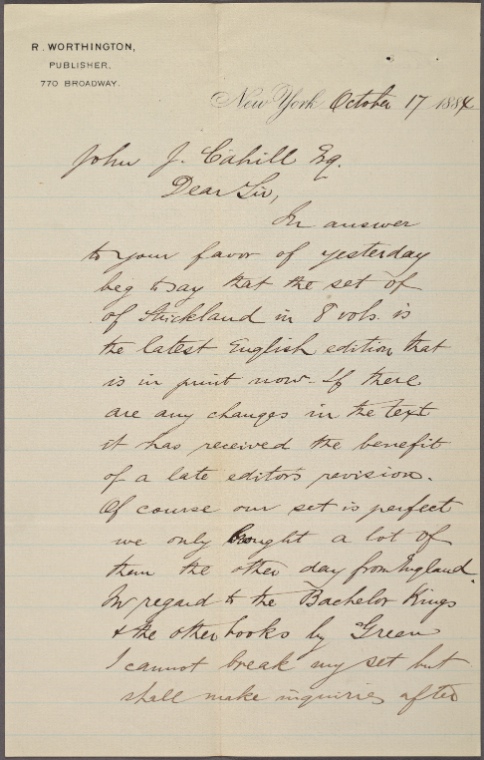 R. WORTHINGTON,
PUBLISHER,
770 BROADWAY.
New York October 17 1884
John J. Cahill Esq.
Dear Sir,
In answer
to your favor of yesterday
beg to say that the set of
of Strickland in 8 vols. is
the latest English edition that
is in print now. If there
are any changes in the text
it has received the benefit
of a late editor's revision.
Of course our set is perfect
we only bought a lot of
them the other day from England.
In regard to the Bachelor Kings
& the other books by Green
I cannot break my set but
shall make inquiries after